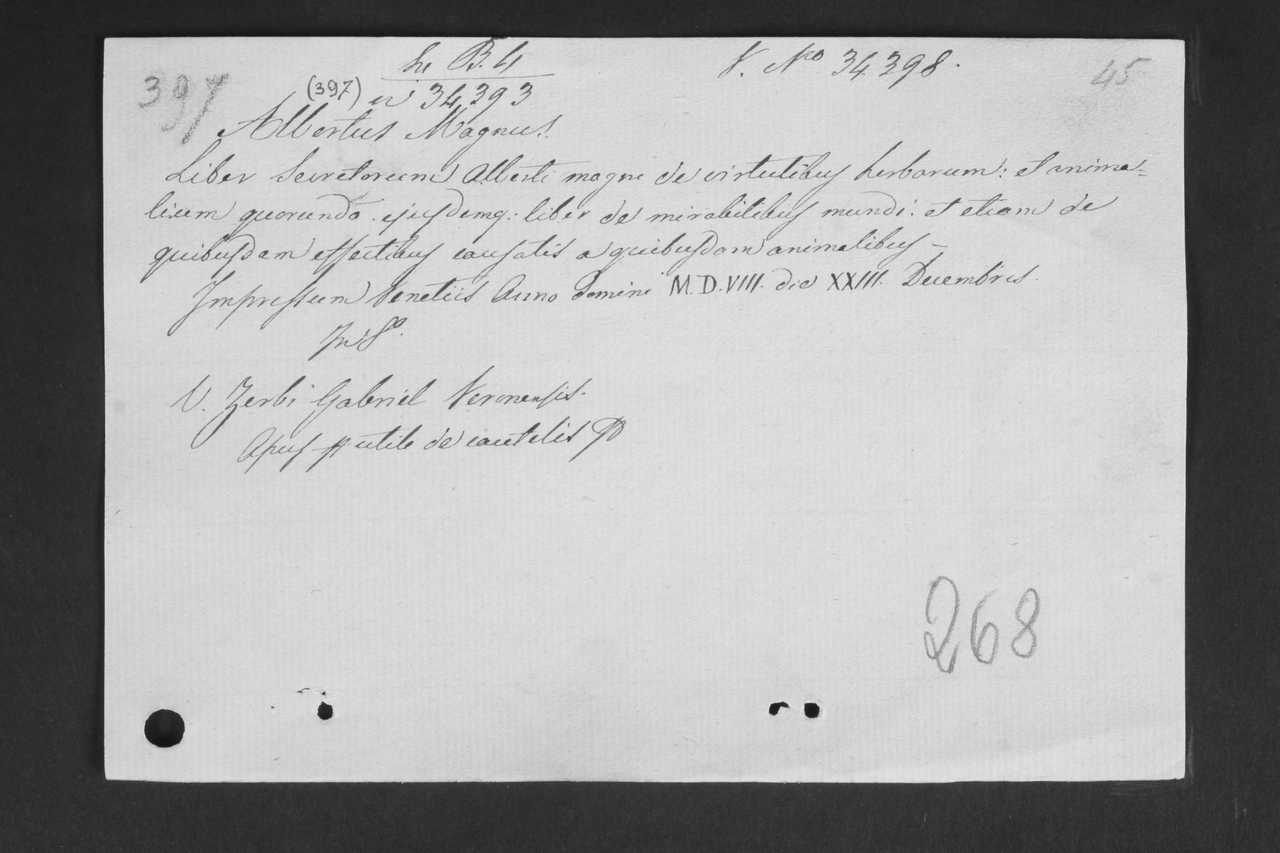 397
B. 4
V. Nro 34,398.
45
(397) 34,393
Albertus Magnus.
Liber Secretorum Alberti magni de virtutibus herborum: et anima=
lium quorundã. ejusdemq: liber de mirabilibus mundi: et etiam de
quibusdam effectibus causatis a quibusdam animalibus –
Impressum Venetiis Anno domini M.D.VIII. die XXIII. Decembris.
in 8º.
V. Zerbi Gabriel Veronensis.
utile de cautelis
268